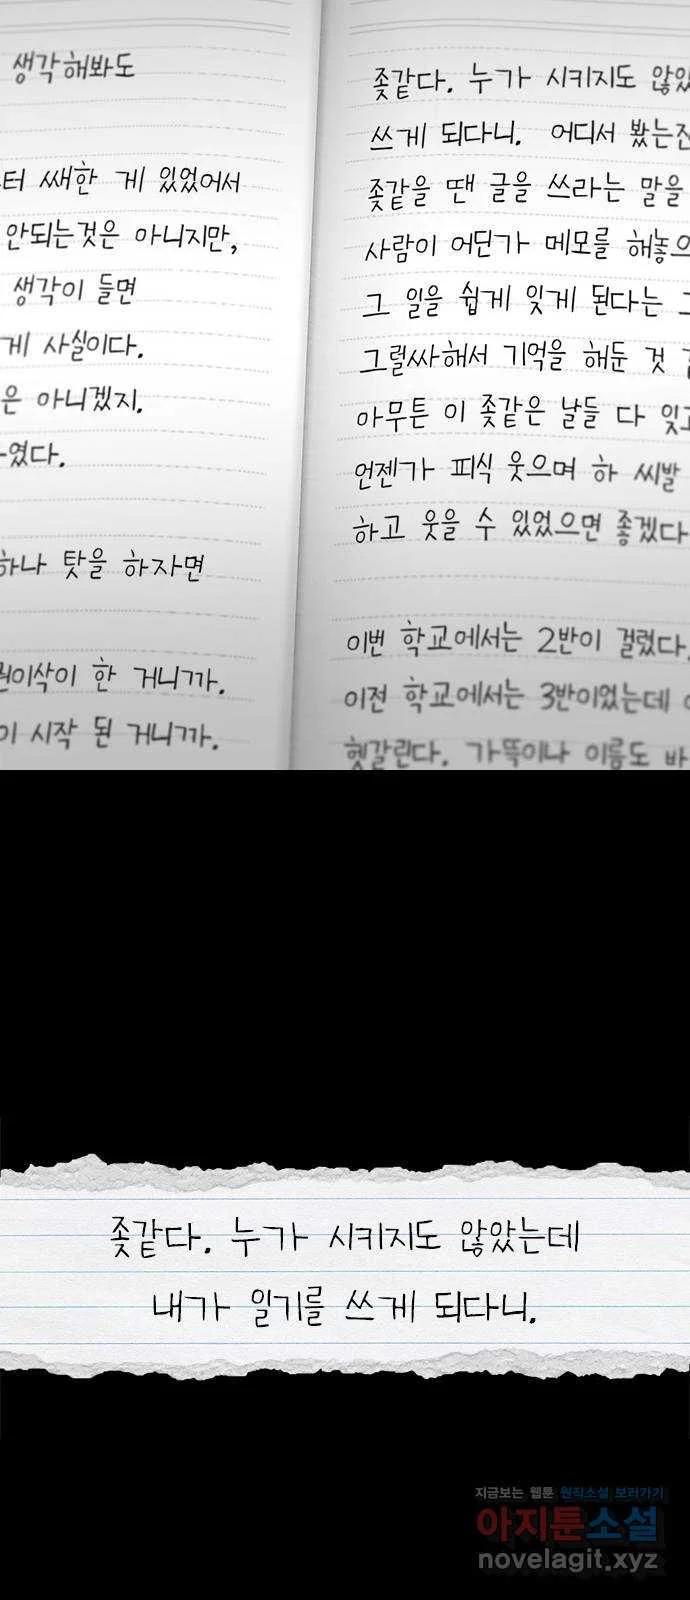 생각해봐도
터 쌔한 게 있었어서
안되는것은 아니지만,
생각이 들면
게 사실이다.
은 아니겠지.
였다.
하나 탓을 하자면
이삭이 한 거니까.
이 시작 된 거니까.
좆같다. 누가 시키지도
쓰게 되다니. 어디서 봤는진
좆같을 땐 글을 쓰라는 말을
사람이 어딘가 메모를 해놓으
그 일을 쉽게 잊게 된다는
그럴싸해서 기억을 해둔 것
아무튼 이 좆같은 날들 다 잊고
언젠가 피식 웃으며 하 씨발
하고 웃을 수 있었으면 좋겠다
이번 학교에서는 2반이 걸렸다.
이전 학교에서는 3반이었는데
헷갈린다. 가뜩이나 이름도 바
좆같다. 누가 시키지도 않았는데
내가 일기를 쓰게 되다니.
지금보는 웹툰 원작소설 보러가기
아지툰소설
novelagit.xyz